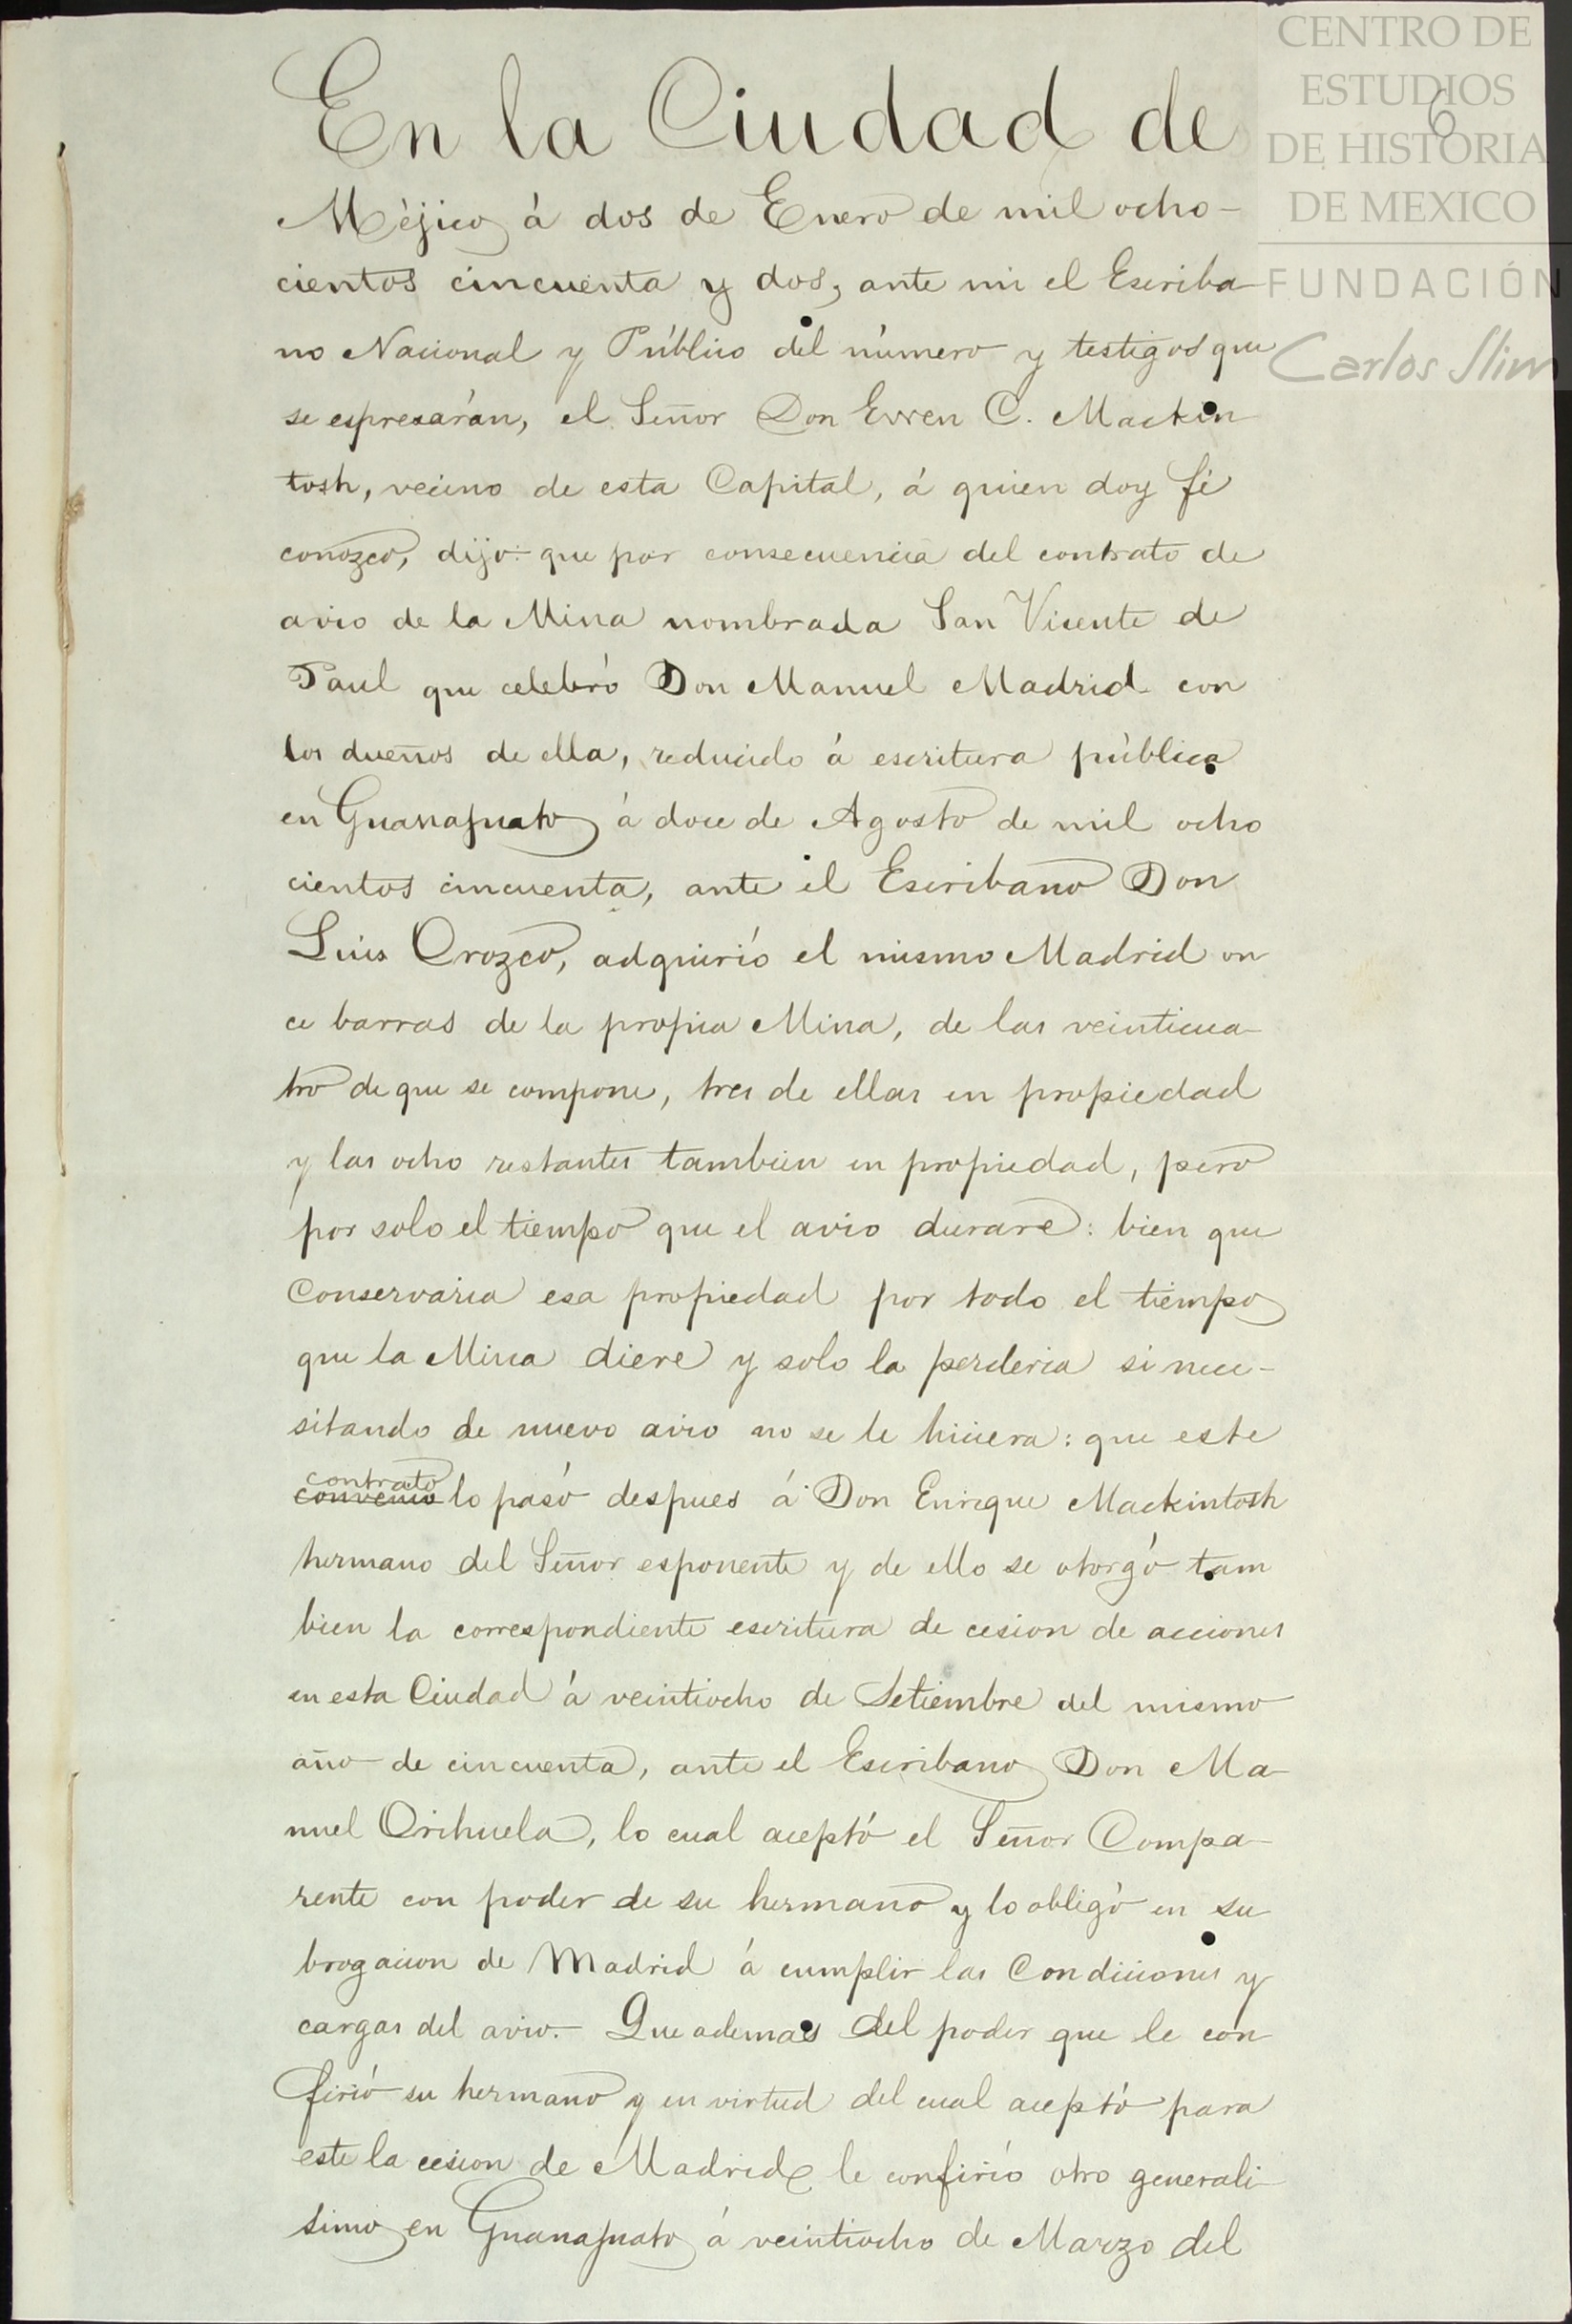 CENTRO DE
ESTUDIOS
DE HISTORIA
DE MEXICO
FUNDACIÓN
Carlos Slim
6
En la Ciudad de
Méjico á dos de Enero de mil ocho-
cientos cincuenta y dos, ante mi el Escriba-
no Nacional y Público del número y testigos que
se espresarán, el Señor Don Ewen C. Mackin
tosh, vecino de esta Capital, á quien doy fé
conozco, dijo: que por consecuencia del contrato de
avio de la Mina nombrada San Vicente de
Paul que celebró Don Manuel Madrid con
los dueños de ella, reducido á escritura pública
en Guanajuato á doce de Agosto de mil ocho
cientos cincuenta, ante el Escribano Don
Luis Orozco, adquirió el mismo Madrid on
ce barras de la propia Mina, de las veinticua-
tro de que se compone, tres de ellas en propiedad
y las ocho restantes tambien en propiedad, pero
por solo el tiempo que el avio durare: bien que
Conservaria esa propiedad por todo el tiempo
que la Mina diere y solo la perderia si nece-
sitando de nuevo avio no se le hiciera: que este
contrato
convenio lo pasó despues á Don Enrique Mackintosh
hermano del Señor esponente y de ello se otorgó tam
bien la correspondiente escritura de cesion de acciones
en esta Ciudad á veintiocho de Setiembre del mismo
año de cincuenta, ante el Escribano Don Ma-
nuel Orihuela, lo cual aceptó el Señor Compa-
rente con poder de su hermano y lo obligó en su
brogacion de Madrid á cumplir las Condiciones y
cargas del avio.- Que ademas del poder que le con
firió su hermano y en virtud del cual aceptó para
este la cesion de Madrid le confirió otro generali-
simo en Guanajuato á veintiocho de Marzo del